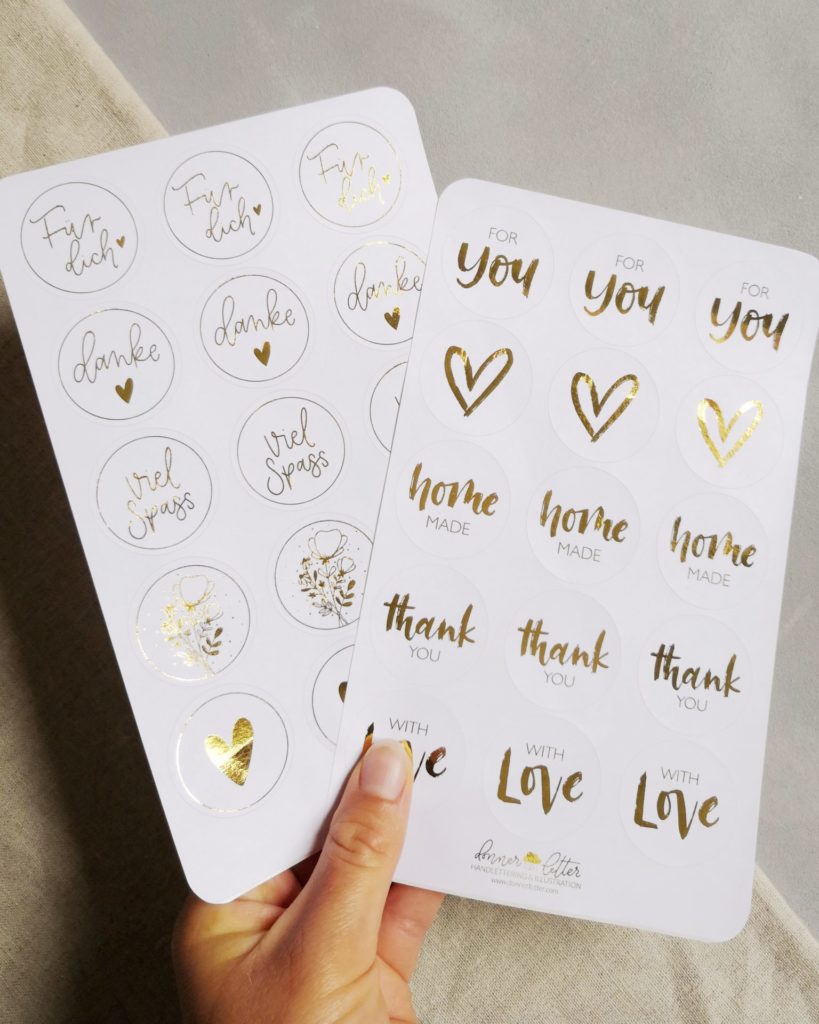 Für
dich
Für
dich
Für
dich
danke
danke
danke
viel
Spass
viel
Spass
FOR
you
FOR
you
FOR
you
home
MADE
home
MADE
home
MADE
thank
YOU
thank
YOU
thank
YOU
WITH
WITH
LOVE
WITH
LOVE
donner letter
HANDLETTERING & ILLUSTRATION
www.donnerletter.com